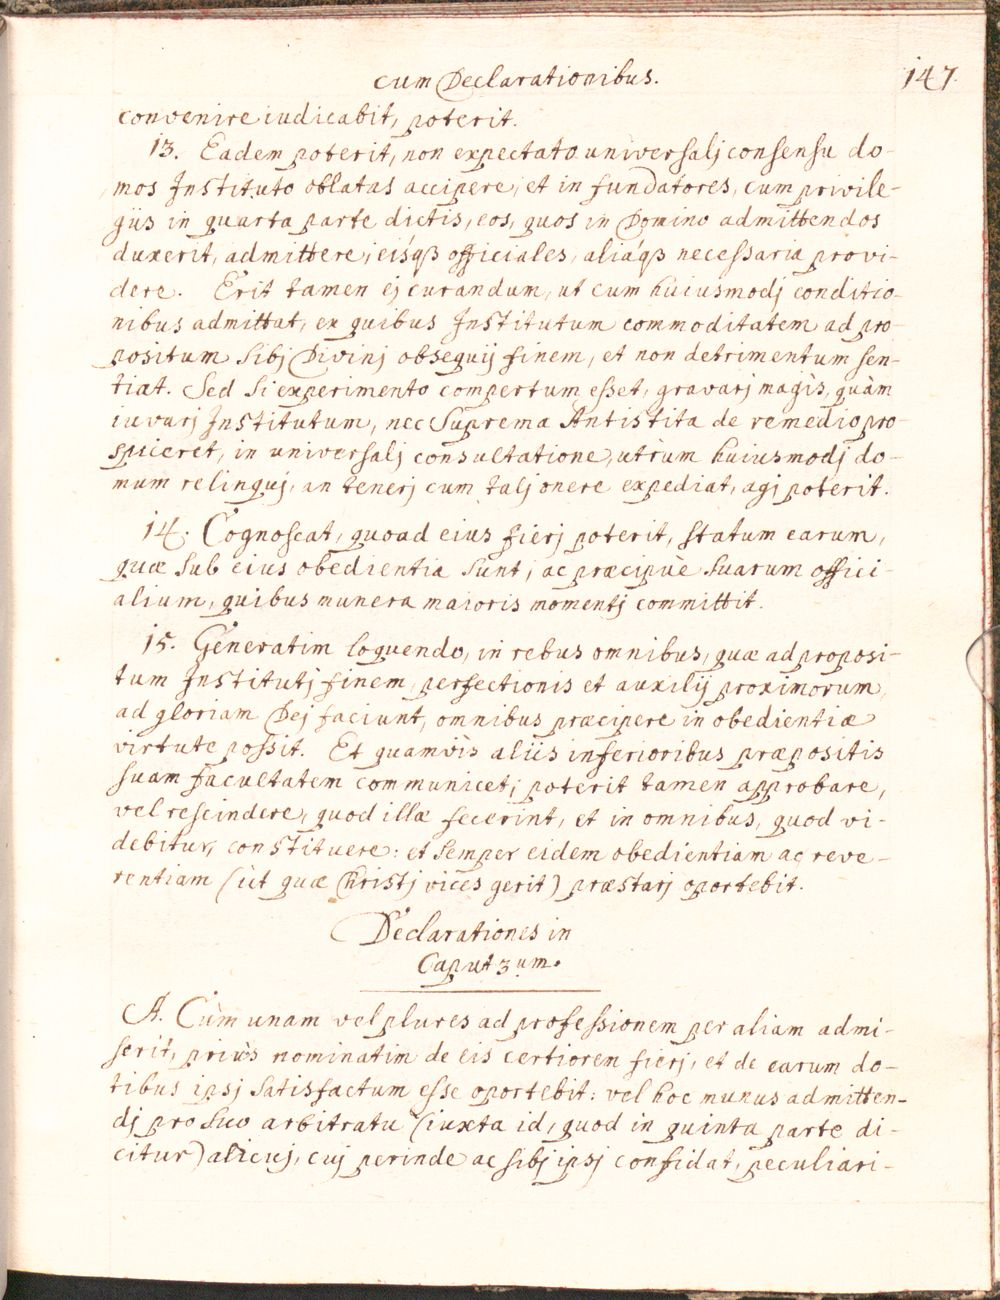 cum Declarationibus.
147.
convenire iudicabit, poterit.
13. Eadem poterit, non expectato universalj consensu do-
mos Instituto oblatas accipere, et in fundatores, cum privile-
giis in quarta parte dictis, eos, quos in Domino admittendos
duxerit, admittere; eisq́ß officiales, aliáqß necessaria provi-
dere. Erit tamen ej curandum, ut cum huiusmodj conditio-
nibus admittat, ex quibus Institutum commoditatem ad pro-
positum sibj Divinj obsequij finem, et non detrimentum sen-
tiat. Sed si experimento compertum esset, gravarj magìs, quàm
iuvarj Institutum, nec Suprema Antistita de remedio pro-
spiceret, in universalj consultatione, utrùm huiusmodj do-
mum relinquj, an tenerj cum talj onere expediat, agj poterit.
14. Cognoscat, quoad eius fierj poterit, statum earum,
quæ sub eius obedientia sunt; ac præcipùe suarum offici-
alium, quibus munera maioris momentj committit.
15. Generatim loquendo, in rebus omnibus, quæ ad proposi-
tum Institutj finem, perfectionis et auxilij proximorum,
ad gloriam Dej faciunt, omnibus præcipere in obedientiæ
virtute possit. Et quamvìs aliis inferioribus præpositis
suam facultatem communicet; poterit tamen approbare,
vel rescindere, quod illæ fecerint, et in omnibus, quod vi-
debitur, constituere: et semper eidem obedientiam ac reve-
rentiam (ùt quæ Christj vices gerit) præstarj oportebit.
Declarationes in
Caput 3um.
A. Cùm unam vel plures ad professionem per aliam admi-
serit, priùs nominatim de eis certiorem fierj, et de earum do-
tibus ipsj satisfactum esse oportebit: vel hoc munus admitten-
dj pro suo arbitratu (iuxta id, quod in quinta parte di-
citur) alicuj, cuj perinde ac sibj ipsj confidat, peculiari-